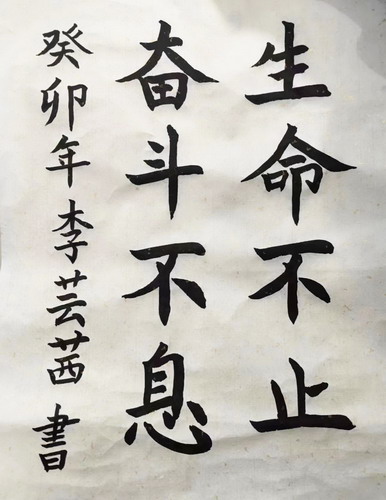 生命不止
奋斗不息
癸卯年李芸茜書